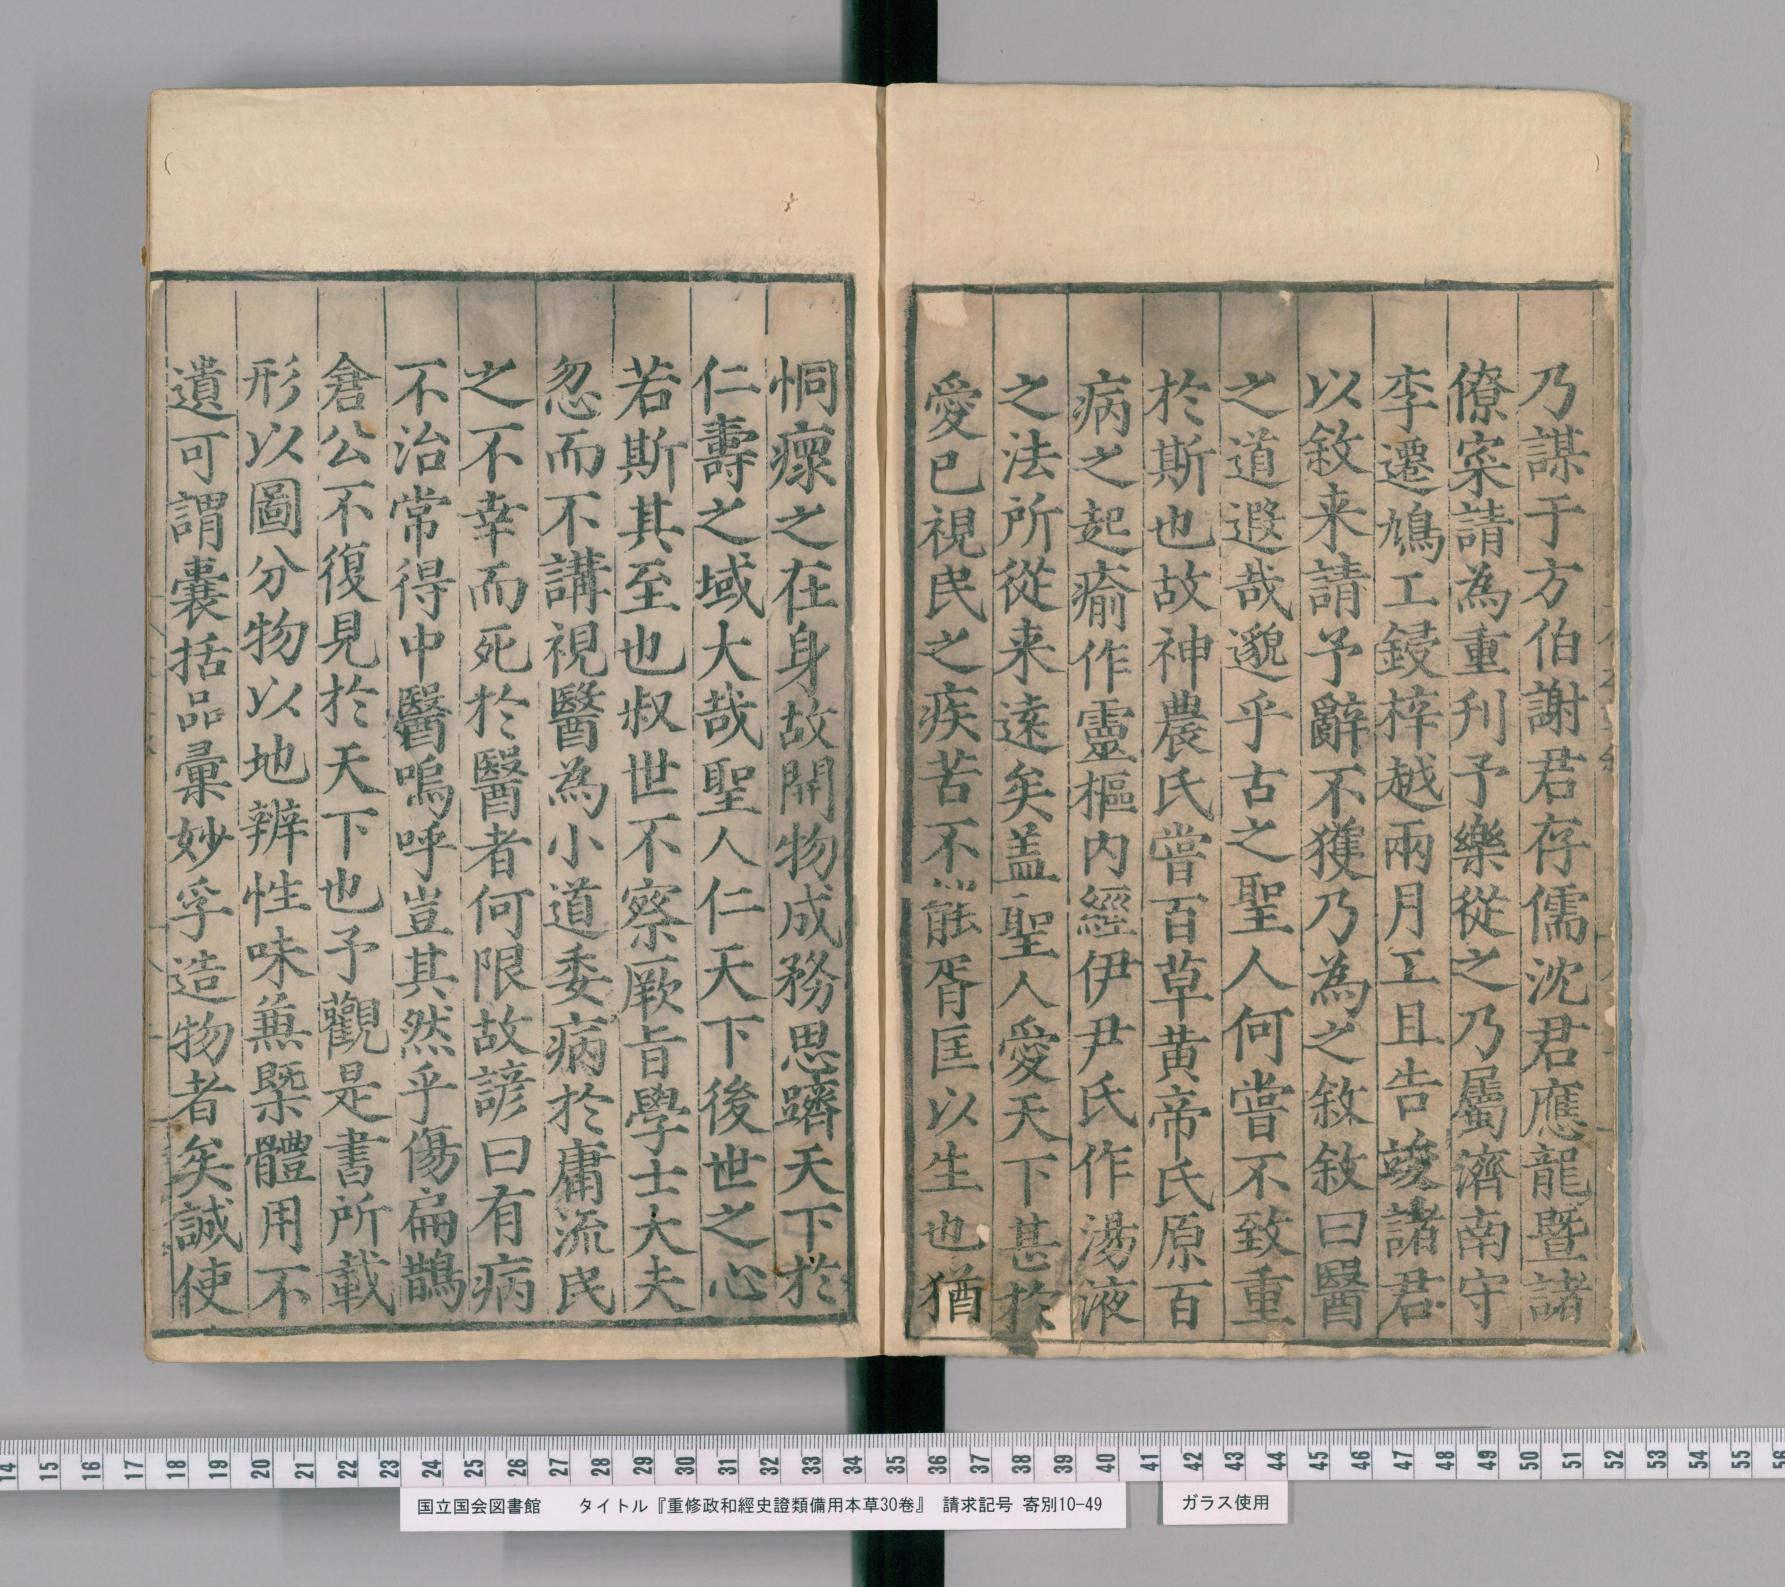 乃謀于方伯謝君存儒沈君應龍暨諸
僚寀請為重刋予樂從之乃屬濟南守
李遷鳩工鋟梓越兩月工且告竣諸君
以敘来請予辭不獲乃為之敘敘曰醫
之道遐哉邈乎古之聖人何嘗不致重
於斯也故神農氏嘗百草黄帝氏原百
病之起瘉作靈樞内經伊尹氏作湯液
之法所從来遠矣盖聖人愛天下甚於
愛已視民之疾苦不能胥匡以生也猶
恫瘝之在身故開物成務思躋天下於
仁壽之域大哉聖人仁天下後世之心
若斯其至也叔世不察厥旨學士大夫
忽而不講視醫為小道委病於庸流民
之不幸而死於醫者何限故諺曰有病
不治常得中醫嗚呼豈其然乎傷扁鵲
倉公不復見於天下也予觀是書所載
形以圖分物以地辨性味兼槩體用不
遺可謂囊括品彙妙孚造物者矣誠使
14 15 16 17 18 19 20 21 22 23 24 25 26 27 28 29 30 31 32 33 34 35 36 37 38 39 40 41 42 43 44 45 46 47 48 49 50 51 52 53 54 55 56
国立国会図書館 タイトル『重修政和經史證類備用本草30巻』 請求記号 寄別10-49
ガラス使用